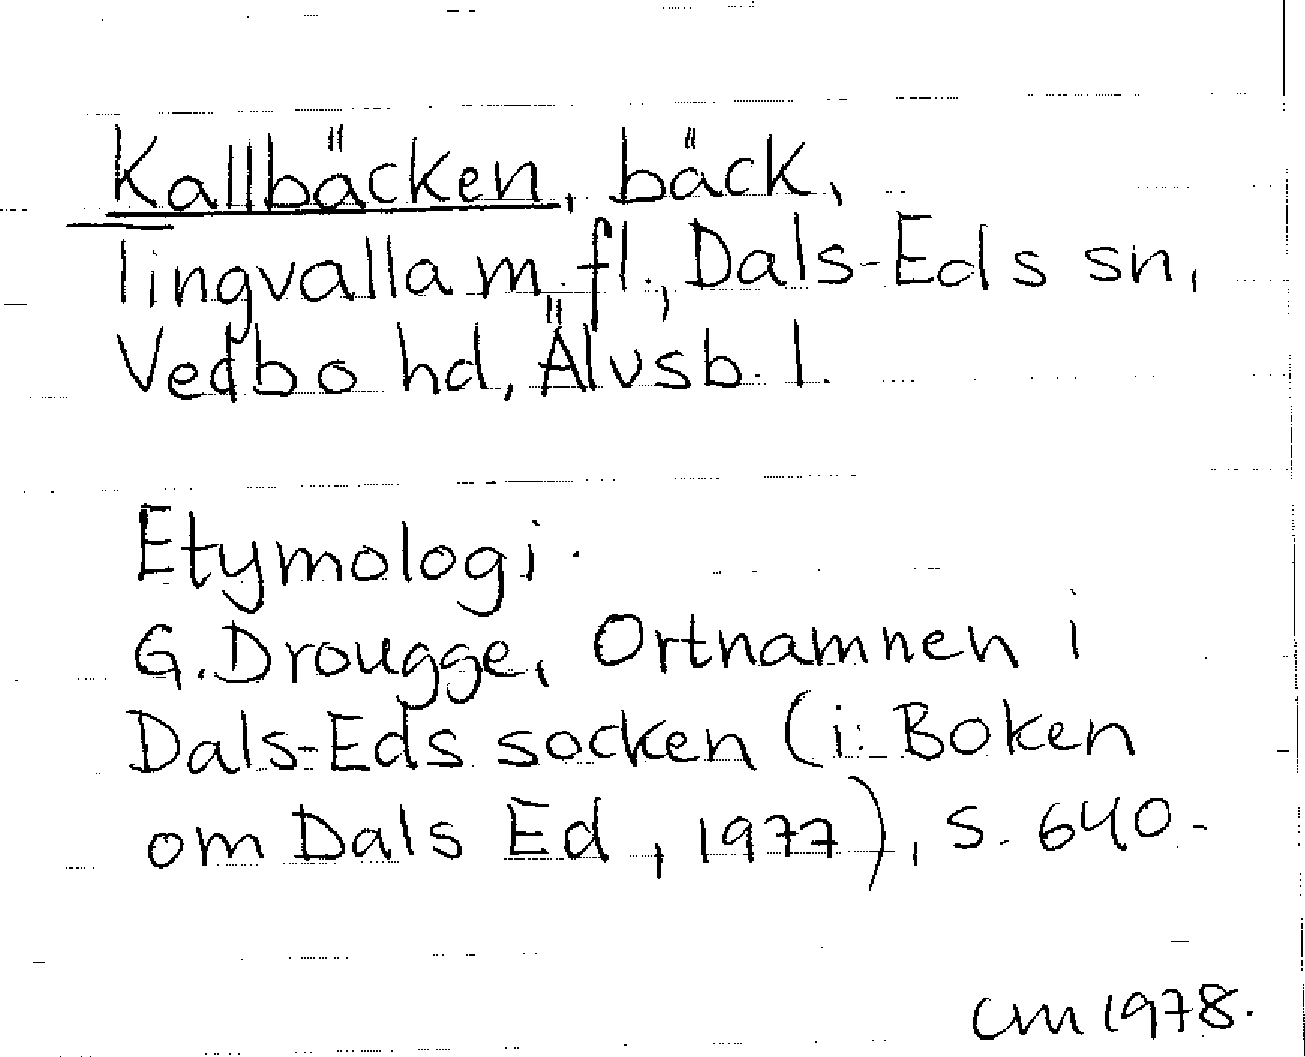 Kallbäcken, bäck,
Tingvalla m. fl., Dals-Eds sn,
Vedbo hd, Älvsb. l.
Etymologi.
G. Drougge, Ortnamnen i
Dals-Eds socken (i: Boken
om Dals Ed, 1977), s. 640.
CM 1978.